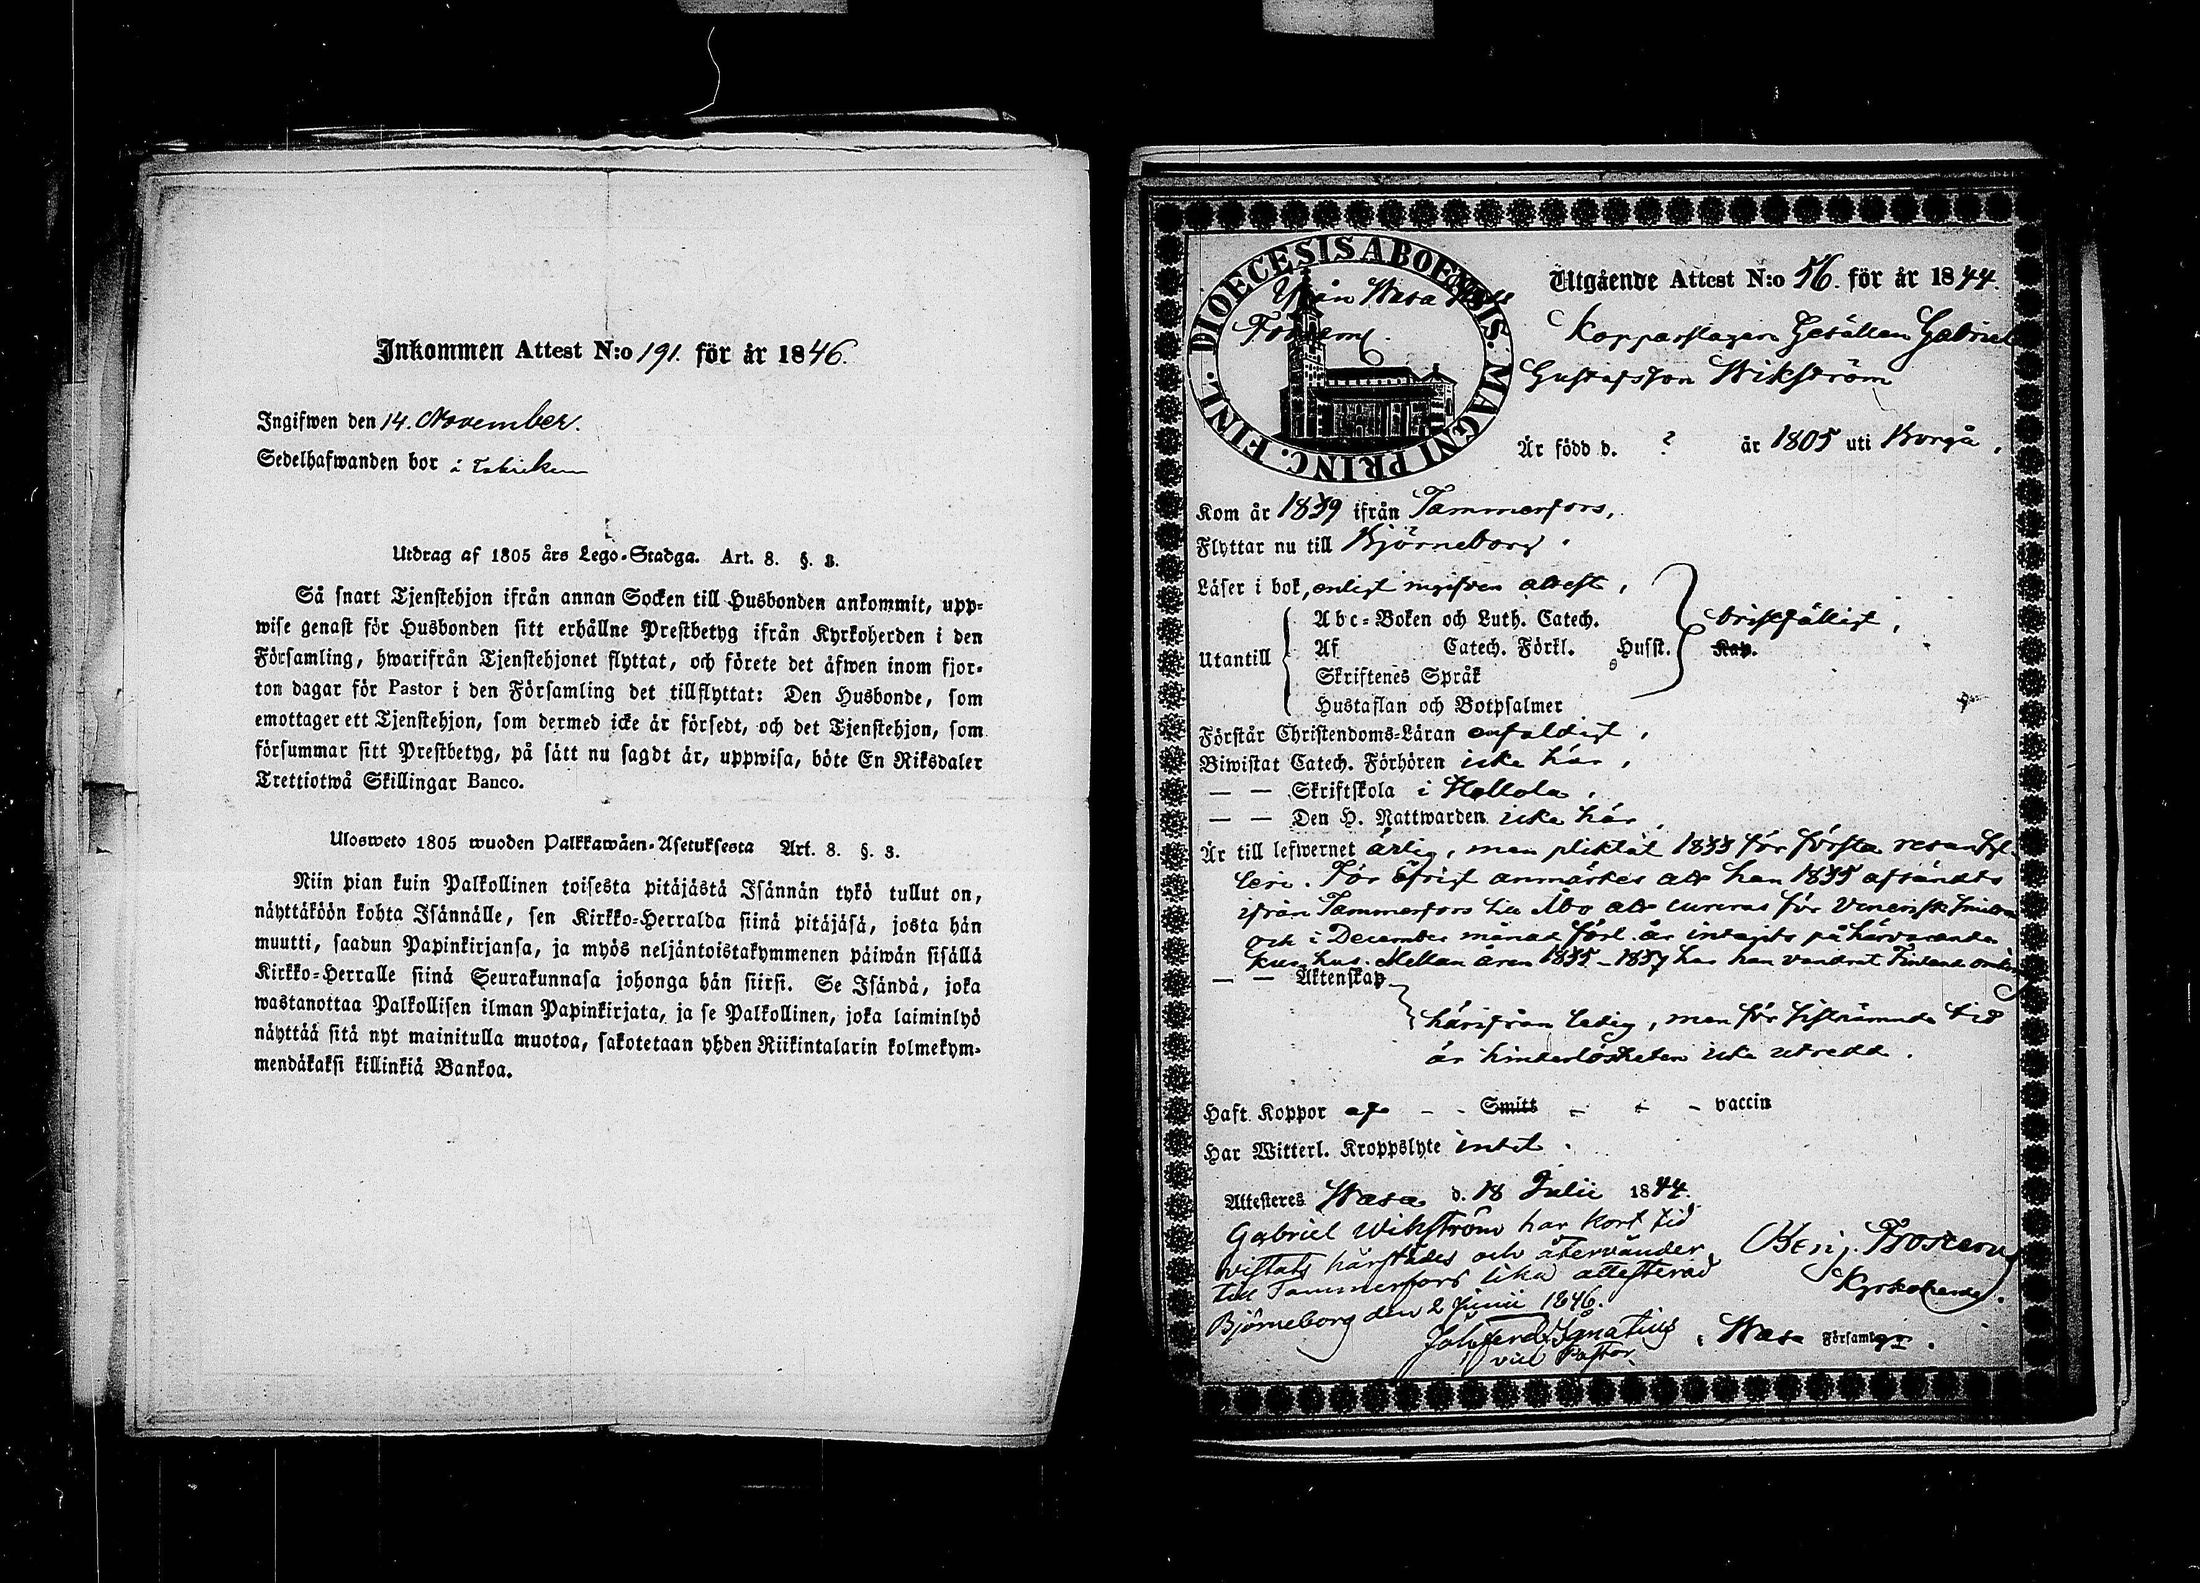 Inkommen Attest N:o 191. för år 1846.
Ingifwen den 14. November.
Sedelhafwanden bor i Fabriken
Utdrag af 1805 års Lego-Stadga. Art. 8. §. 3.
Så snart Tjenstehjon ifrån annan Socken till Husbonden ankommit, upp-
wise genast för Husbonden sitt erhållne Prestbetyg ifrån Kyrkoherden i den
Församling, hwarifrån Tjenstehjonet flyttat, och förete det äfwen inom fjor-
ton dagar för Pastor i den Församling det tillflyttat: Den Husbonde, som
emottager ett Tjenstehjon, som dermed icke är försedt, och det Tjenstehjon, som
försummar sitt Prestbetyg, på sätt nu sagdt är, uppwisa, böte En Riksdaler
Trettiotwå Skillingar Banco.
Ulosweto 1805 wuoden Palkkawäen-Asetuksesta Art. 8. §. 3.
Niin pian kuin Palkollinen toisesta pitäjästä Isännän tykö tullut on,
näyttäköön kohta Isännälle, sen Kirkko-Herralda siinä pitäjäsä, josta hän
muutti, saadun Papinkirjansa, ja myös neljäntoistakymmenen päiwän sisällä
Kirkko-Herralle siinä Seurakunnasa johonga hän siirsi. Se Isändä, joka
wastanottaa Palkollisen ilman Papinkirjata, ja se Palkollinen, joka laiminlyö
näyttää sitä nyt mainitulla muotoa, sakotetaan yhden Riikintalarin kolmekym-
mendäkaksi killinkiä Bankoa.
DIOECESIS ABOENSIS. MAGNI PRINC. FINL.
Ifrån Wasa
Utgående Attest N:o 56. för år 1844.
Kopparslagare Gesällen Gabriel
Gustafsson Wikström
Är född d. ? år 1805 uti Borgå.
Kom år 1839 ifrån Tammerfors,
Flyttar nu till Björneborg.
Läser i bok, enligt ingifven attest,
Utantill
Abc-Boken och Luth. Catech.
Af Catech. Förkl. Husst. Kap.
Skriftenes Språk
Hustaflan och Botpsalmer
bristfälligt,
Förstår Christendoms-Läran enfaldigt,
Biwistat Catech. Förhören icke här,
— — Skriftskola i Hollola,
— — Den H. Nattwarden icke här,
Är till lefwernet ärlig, men pliktat 1833 för första resan fyl-
leri. För öfrigt anmärkes att han 1835 afsändts
ifrån Tammerfors till Åbo att cureras för Venerisk smitta
och i December månad förl. år intagits på härvarande
kurhus. Mellan åren 1835–1837 har han vandrat Finland omkring
— — Äktenskap
härifrån ledig, men för sistnämnde tid
är hinderlösheten icke utredd.
Haft Koppor ja - - Smitt - - - vaccin
Har Witterl. Kroppslyte intet.
Attesteres Wasa d. 18 Julii 1844.
Gabriel Wikström har kort tid
vistats härstädes och återvänder
till Tammerfors lika attesterad
Björneborg den 2 Junii 1846.
Joh. Ferd. Ignatius
vice Pastor.
Kyrkoherde.
i Wasa Församl.